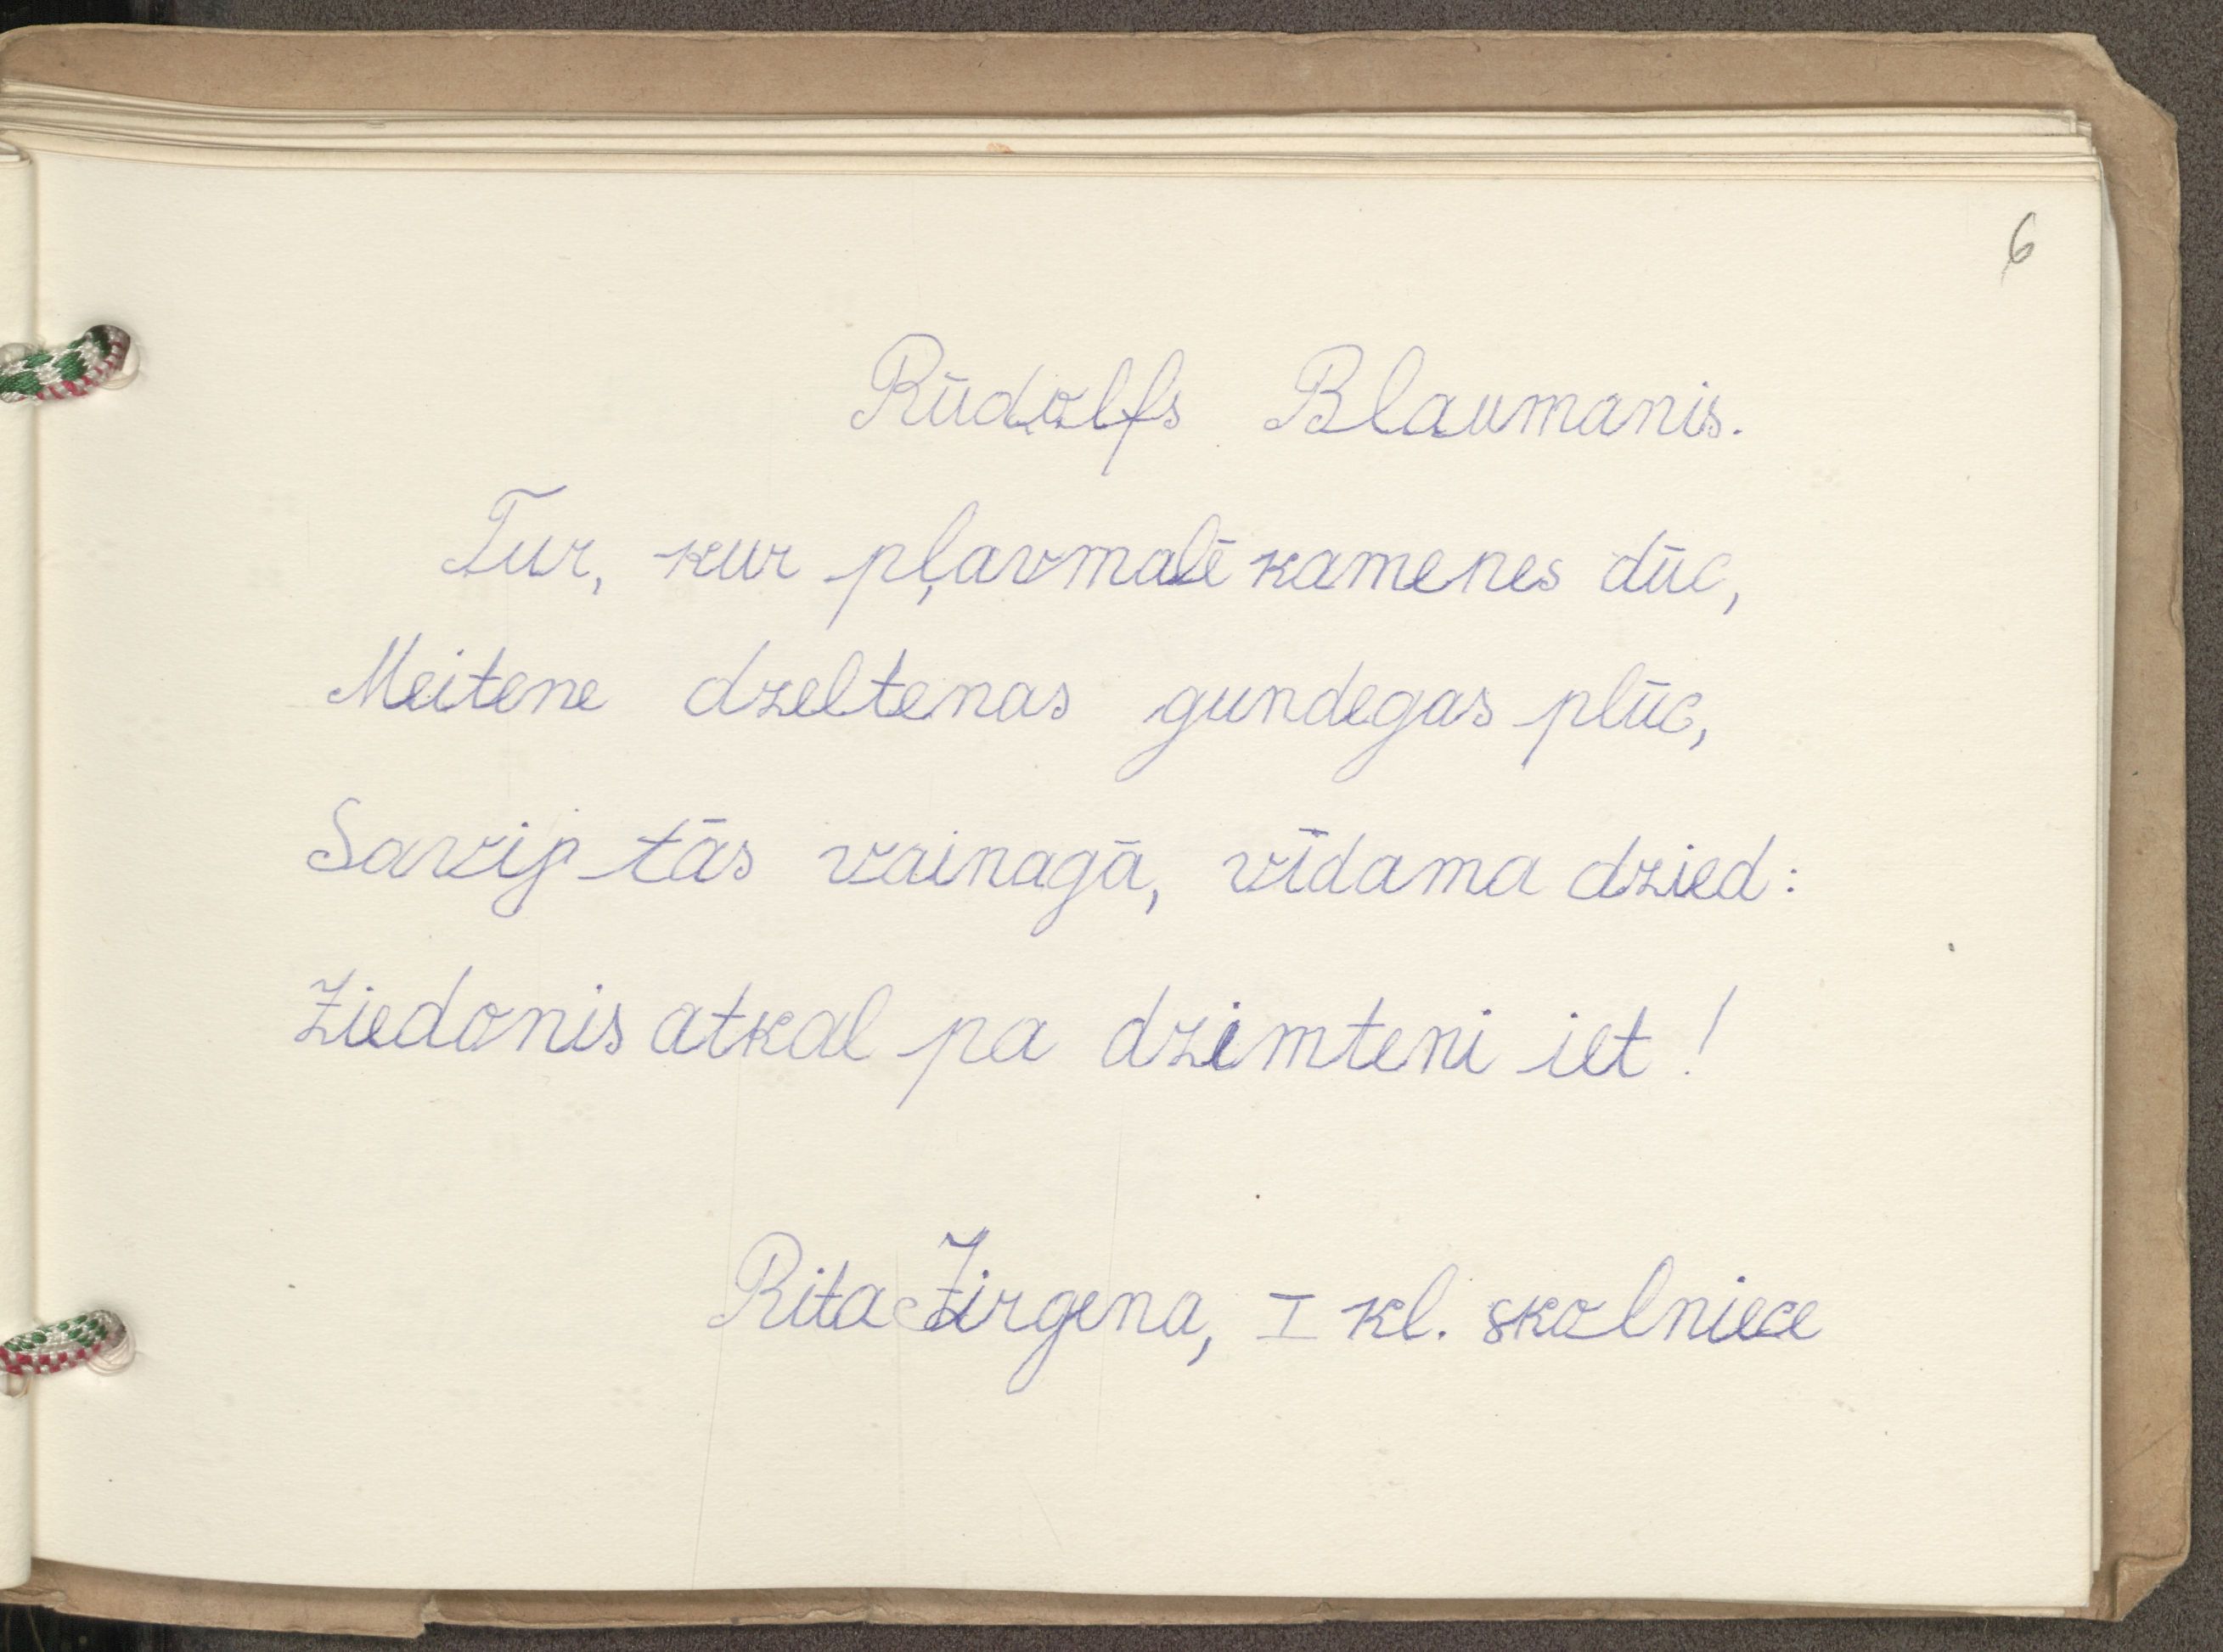 6
Rūdolfs Blaumanis.
Tur, kur pļavmalē kamenes dūc,
Meitene dzeltenas gundegas plūc,
Savij tās vainagā, vīdama dzied:
Ziedonis atkal pa dzimteni iet!
Rita Zirgena, I kl. skolniece